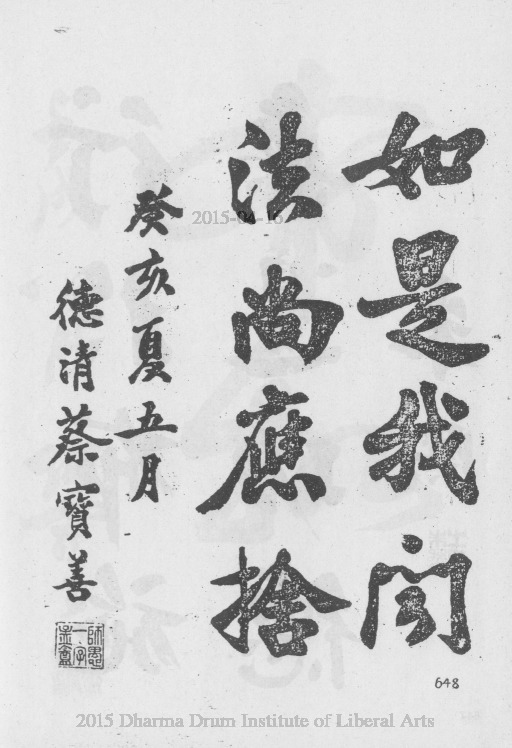 如是我聞
法尚應捨
癸亥夏五月
德清蔡寶善
2015-04-16
648
2015 Dharma Drum Institute of Liberal Arts